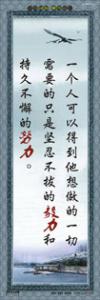 一个人可以得到他想做的一切
需要的只是坚忍不拔的毅力和
持久不懈的努力。